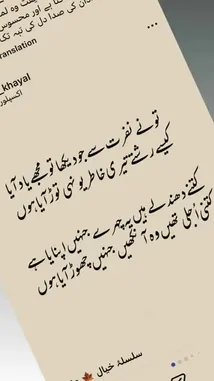 ranslation
_khayal
تو نے نفرت سے جو دیکھا تو مجھے یاد آیا
کیسے رشتے تیری خاطر یونہی توڑ آیا ہوں
کتنے دھندلے ہیں یہ چہرے جنہیں اپنایا ہے
کتنی اُجلی تھیں وہ آنکھیں جنہیں چھوڑ آیا ہوں
سلسلۂ خیال